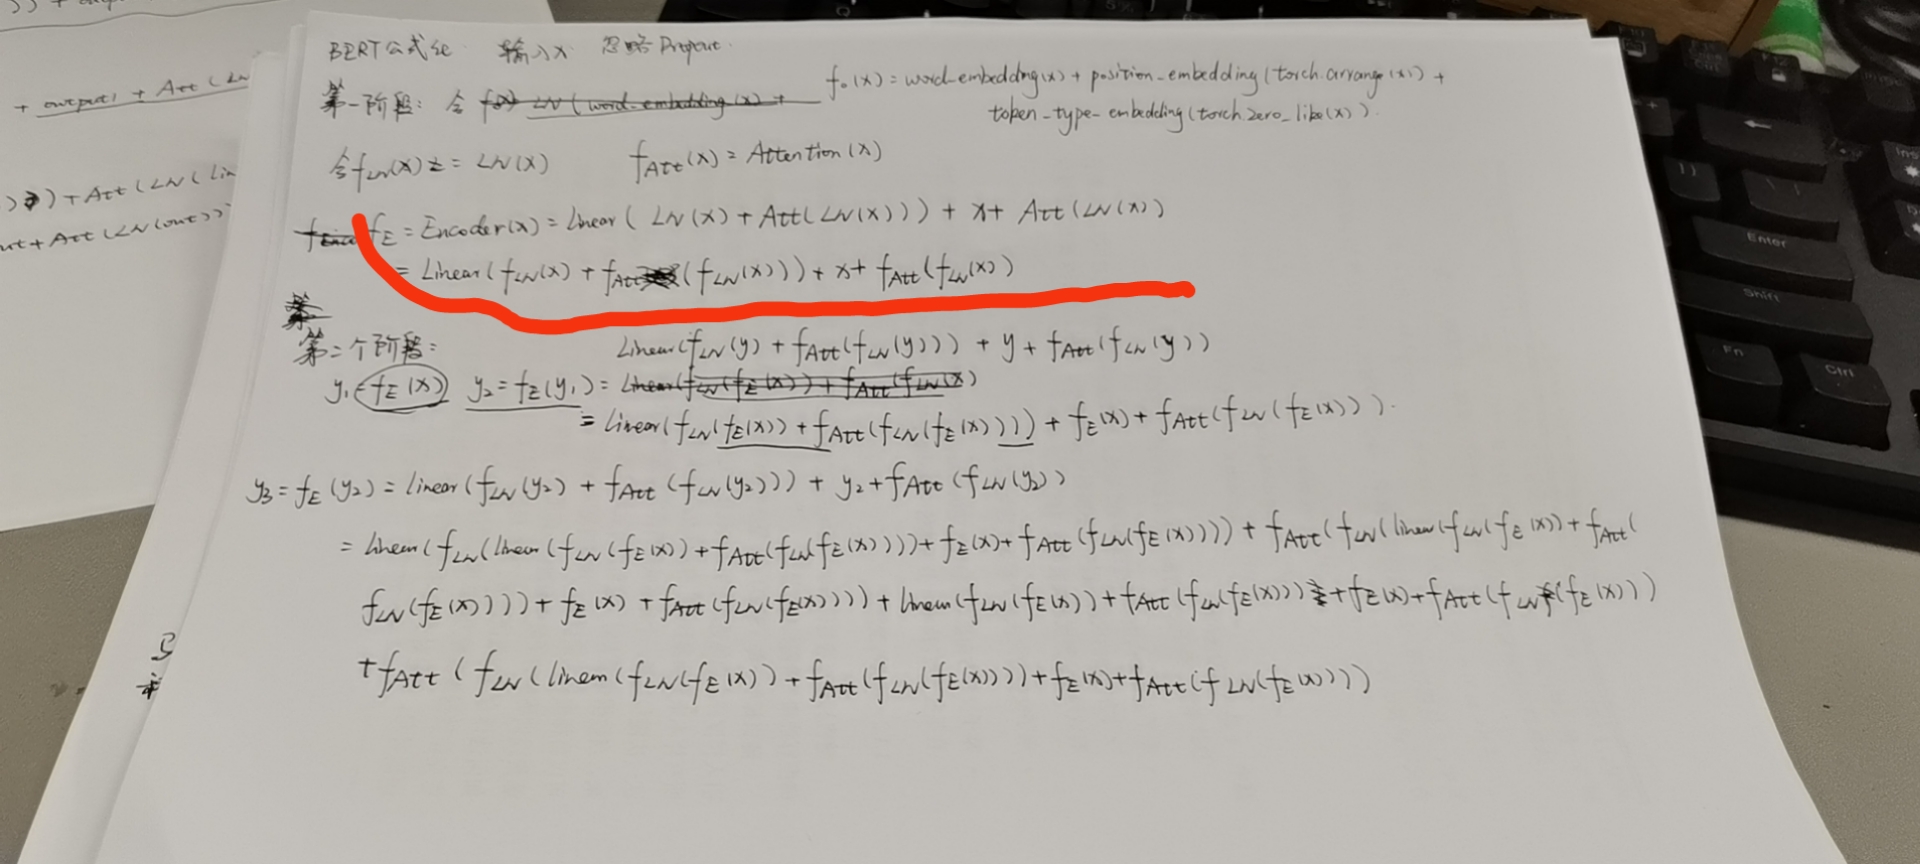 BERT公式化 输入x 忽略Dropout.
第一阶段: 令 f₀(x) = word_embedding(x) + position_embedding(torch.arrange(x)) +
token_type_embedding(torch.zero_like(x)).
令f_LN(x) = LN(x) f_Att(x) = Attention(x)
f_E = Encoder(x) = Linear( LN(x) + Att(LN(x))) + x + Att(LN(x))
= Linear(f_LN(x) + f_Att(f_LN(x))) + x + f_Att(f_LN(x))
第二个阶段: Linear(f_LN(y) + f_Att(f_LN(y))) + y + f_Att(f_LN(y))
y₁ = f_E(x) y₂ = f_E(y₁) =
= Linear(f_LN(f_E(x)) + f_Att(f_LN(f_E(x)))) + f_E(x) + f_Att(f_LN(f_E(x))).
y₃ = f_E(y₂) = Linear(f_LN(y₂) + f_Att(f_LN(y₂))) + y₂ + f_Att(f_LN(y₂))
= Linear(f_LN(linear(f_LN(f_E(x)) + f_Att(f_LN(f_E(x)))) + f_E(x) + f_Att(f_LN(f_E(x)))) + f_Att(f_LN(linear(f_LN(f_E(x)) + f_Att(
f_LN(f_E(x)))) + f_E(x) + f_Att(f_LN(f_E(x)))) + Linear(f_LN(f_E(x)) + f_Att(f_LN(f_E(x))) + f_E(x) + f_Att(f_LN(f_E(x)))
+ f_Att(f_LN(linear(f_LN(f_E(x)) + f_Att(f_LN(f_E(x)))) + f_E(x) + f_Att(f_LN(f_E(x))))
+ output1 + Att(LN
) + Att(LN(lin
ut + Att(LN(out))
Enter
Shift
Fn
Ctrl
Ins